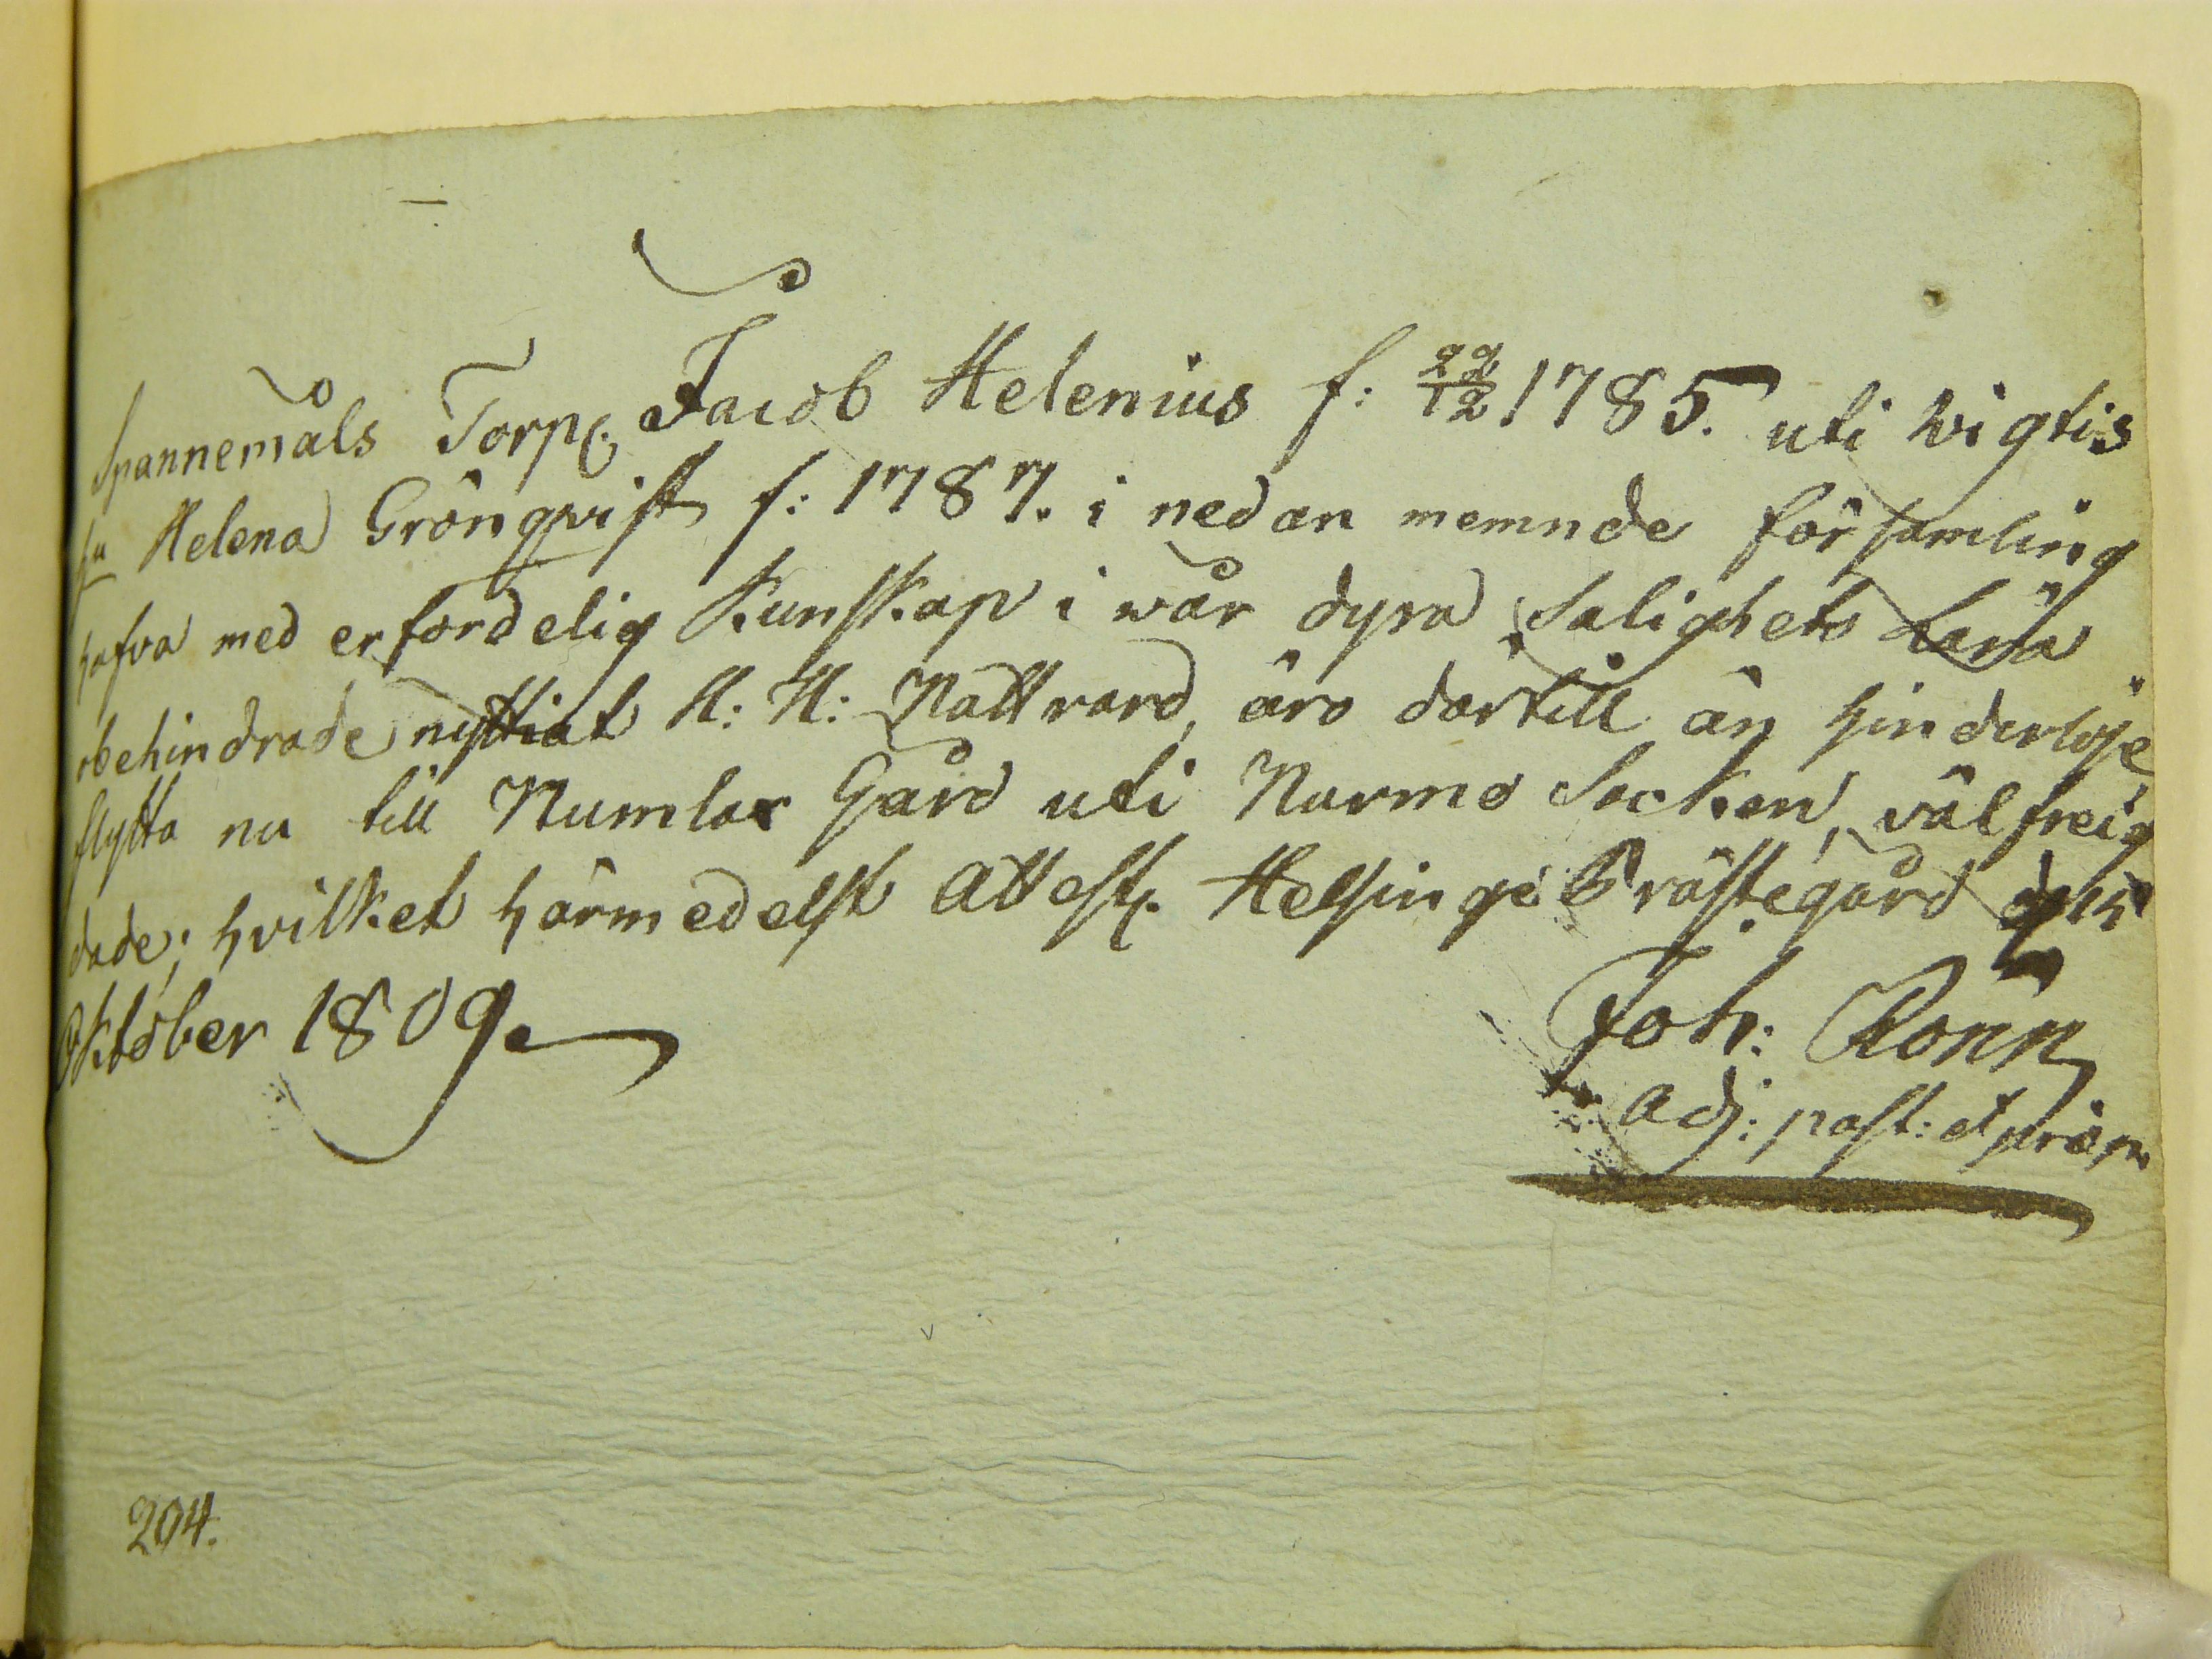 Spannemåls Torp. Jacob Helenius f: 22/12 1785. uti Wigtis
hu Helena Grönqvist f: 1787. i nedan nemnde församling
hafva med erforderlig Kunskap i wår dyra Salighets Lära
obehindrade nyttiat H: H: Nattvard, äro därtill än hinderlöse
flytta nu till Numlax Gård uti Nurmo Socken, välfreig
dade; hvilket härmedelst Attest. Helsinge Prästegård
Oktober 1809.
Joh: Rönn
Adj: past: et præp
204.